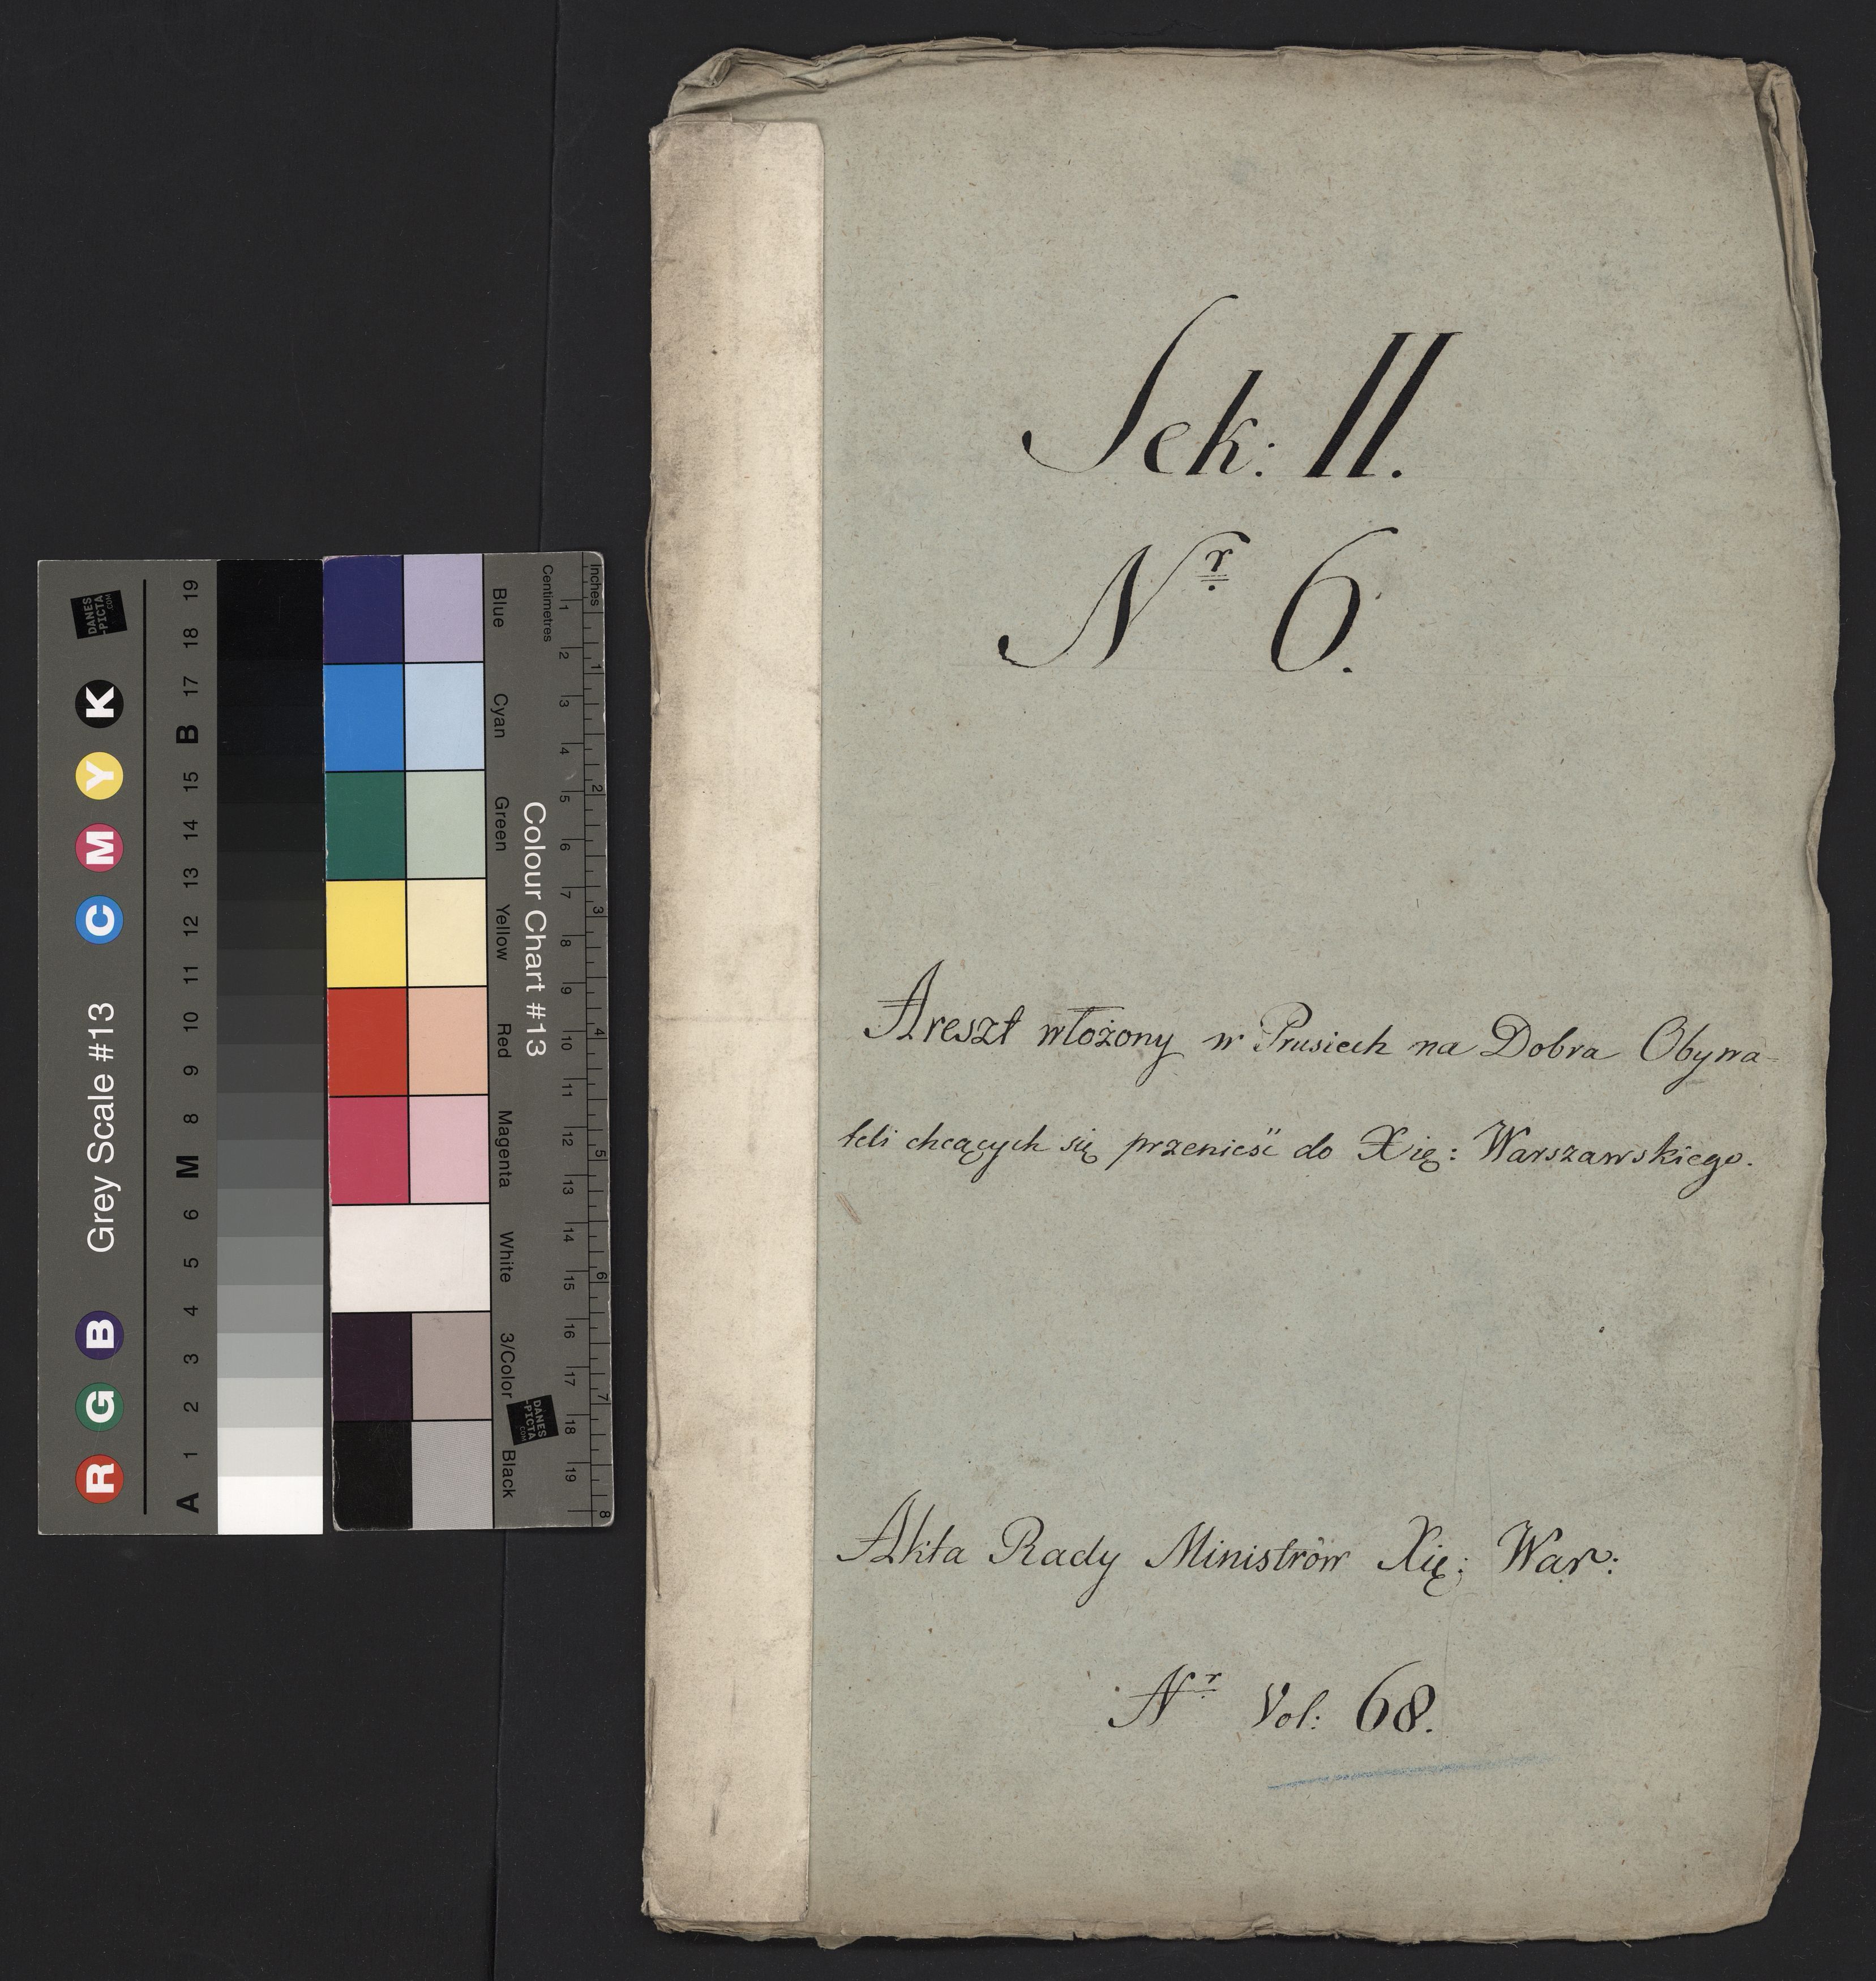 Sek: II.
Nr 6.
Areszt włożony w Prusiech na Dobra Obywa-
teli chcących się przenieść do Xię: Warszawskiego.
Akta Rady Ministrów Xię: War:
Nr Vol: 68.
Grey Scale #13
R G B C M Y K
A 1 2 3 4 5 6 M 8 9 10 11 12 13 14 15 B 17 18 19
DANES
-PICTA
.COM
Colour Chart #13
Blue Cyan Green Yellow Red Magenta White 3/Color Black
Centimetres
1 2 3 4 5 6 7 8 9 10 11 12 13 14 15 16 17 18 19
Inches
1 2 3 4 5 6 7 8
DANES
-PICTA
.COM